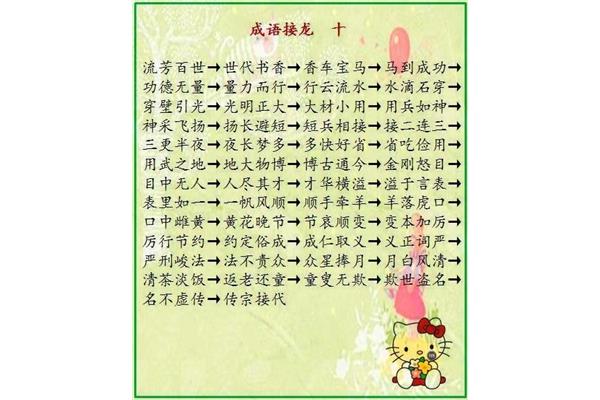 成语接龙 十
流芳百世→世代书香→香车宝马→马到成功→
功德无量→量力而行→行云流水→水滴石穿→
穿壁引光→光明正大→大材小用→用兵如神→
神采飞扬→扬长避短→短兵相接→接二连三→
三更半夜→夜长梦多→多快好省→省吃俭用→
用武之地→地大物博→博古通今→金刚怒目→
目中无人→人尽其才→才华横溢→溢于言表→
表里如一→一帆风顺→顺手牵羊→羊落虎口→
口中雌黄→黄花晚节→节哀顺变→变本加厉→
厉行节约→约定俗成→成仁取义→义正词严→
严刑峻法→法不责众→众星捧月→月白风清→
清茶淡饭→返老还童→童叟无欺→欺世盗名→
名不虚传→传宗接代